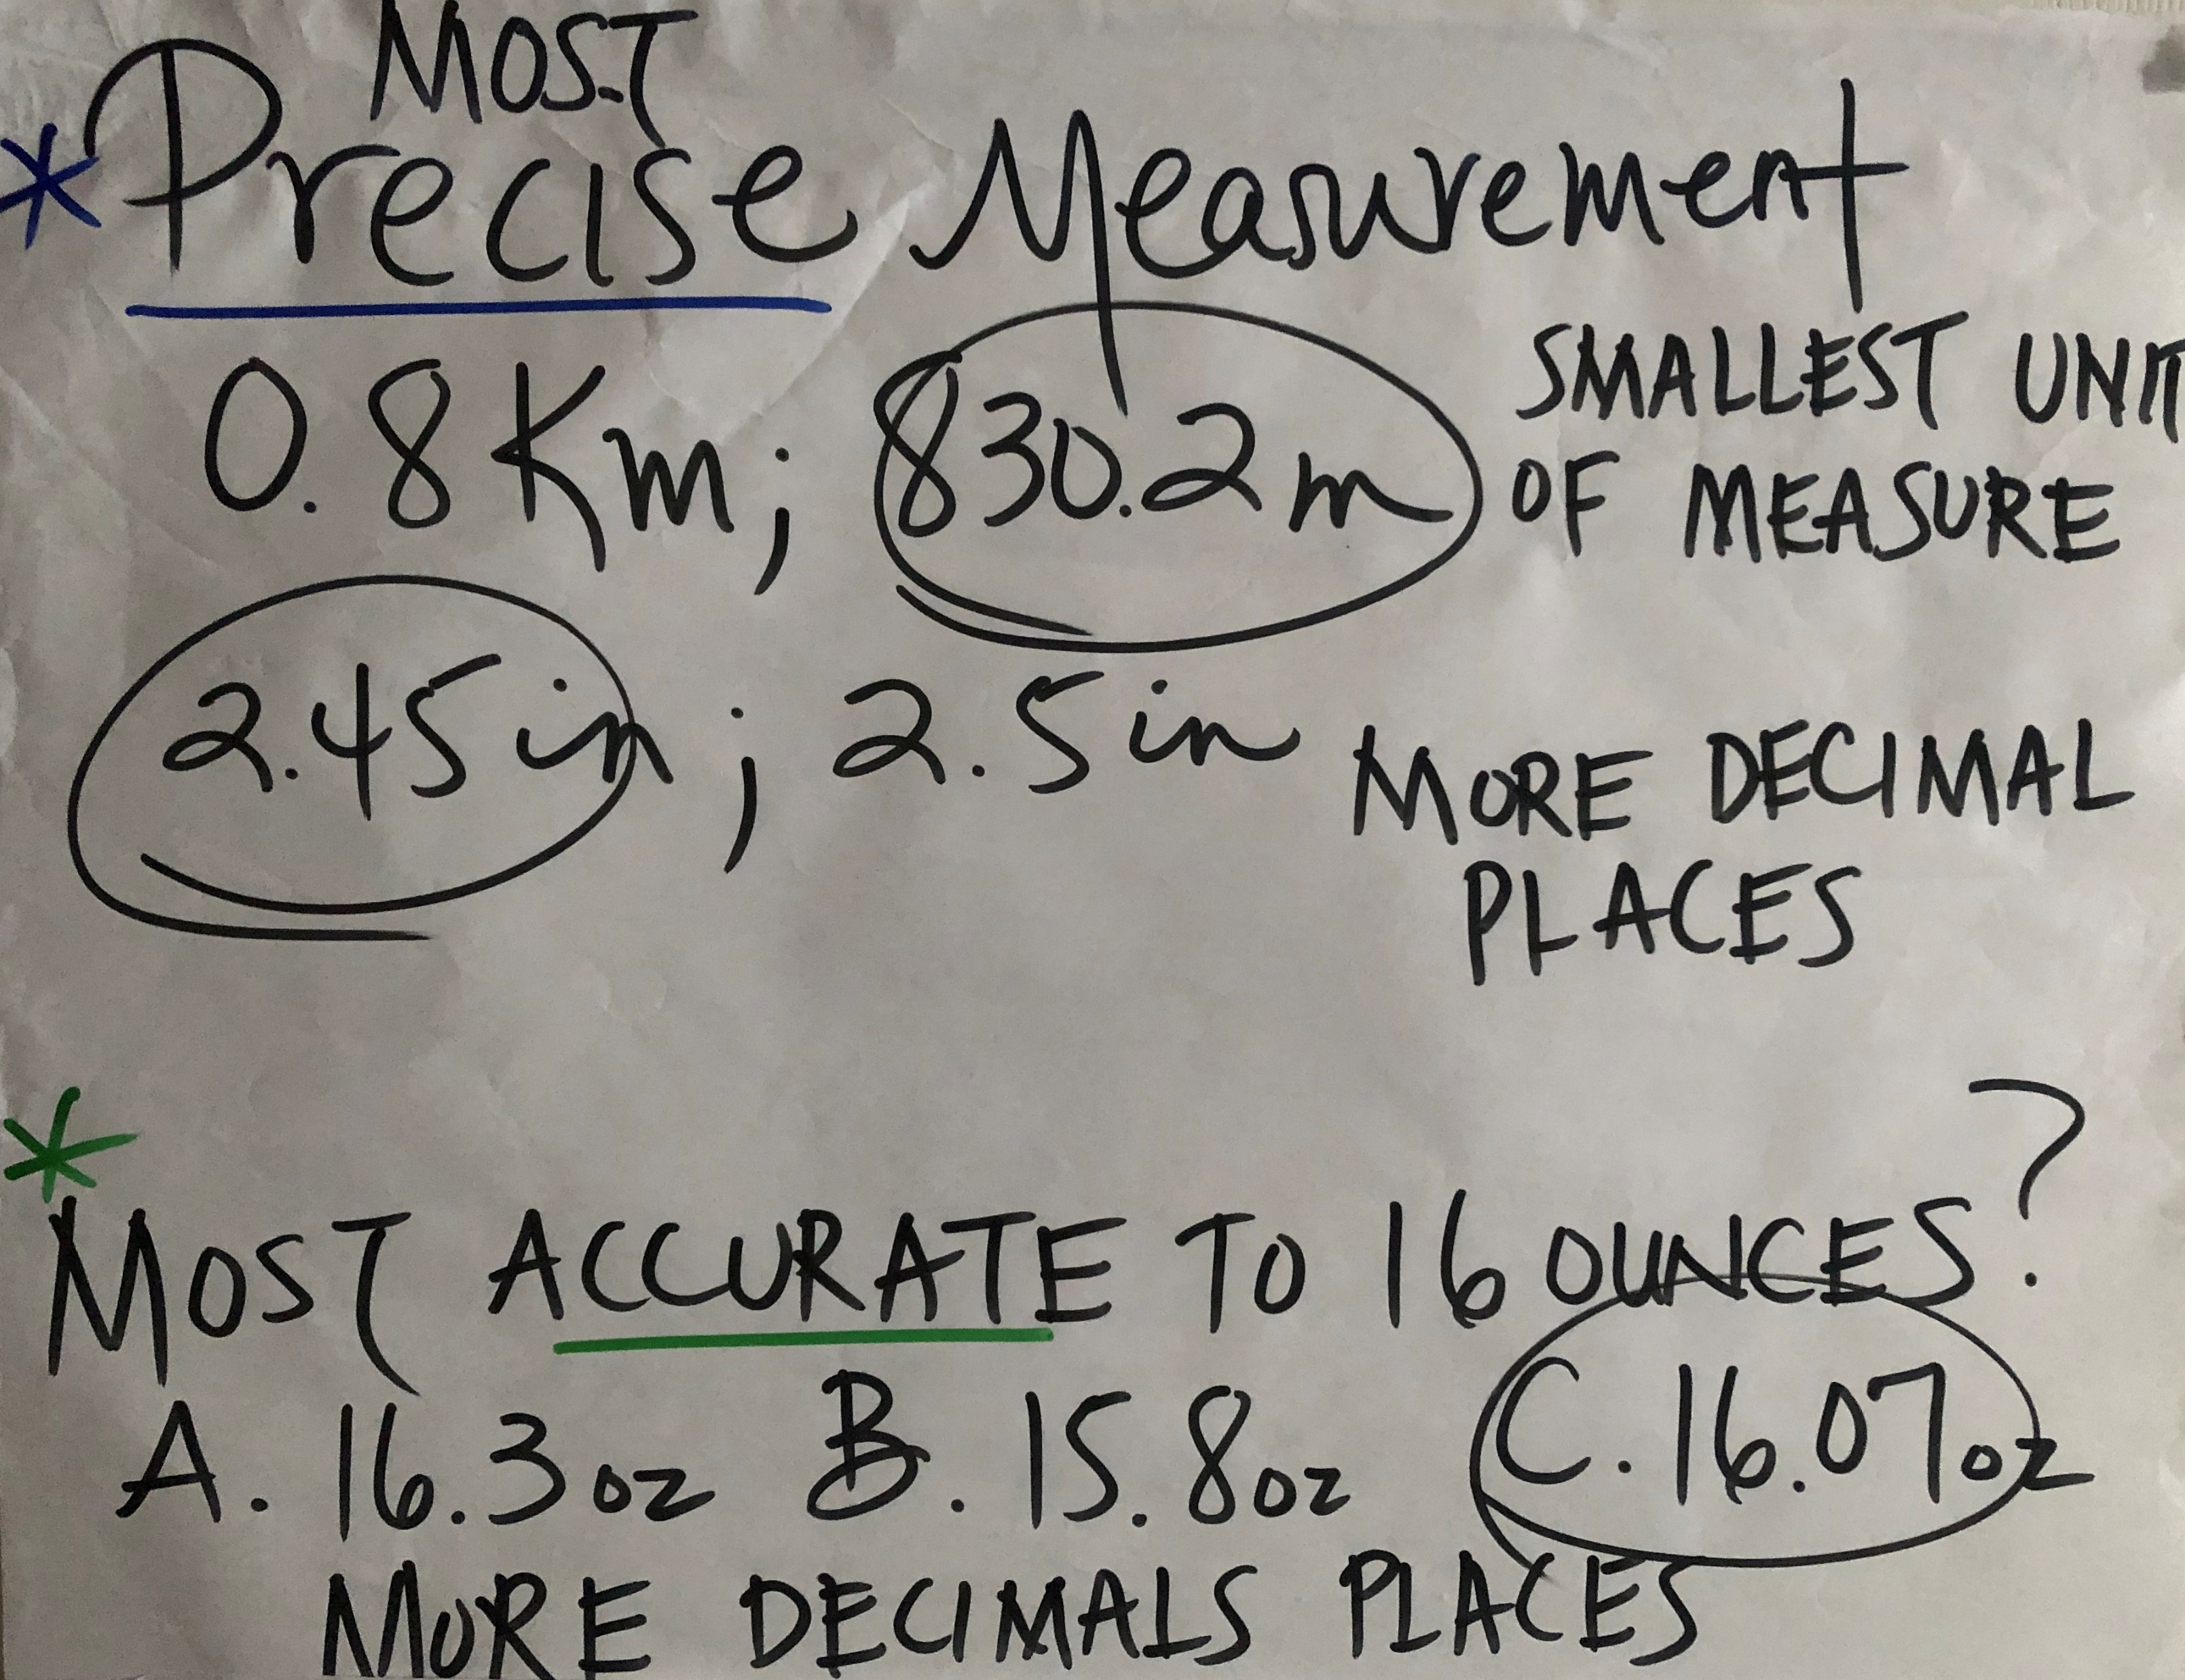 MOST
* Precise Measurement
0.8 Km; 830.2 m SMALLEST UNIT
OF MEASURE
2.45 in; 2.5 in MORE DECIMAL
PLACES
*
MOST ACCURATE TO 16 OUNCES?
A. 16.3 oz B. 15.8 oz C. 16.07 oz
MORE DECIMALS PLACES